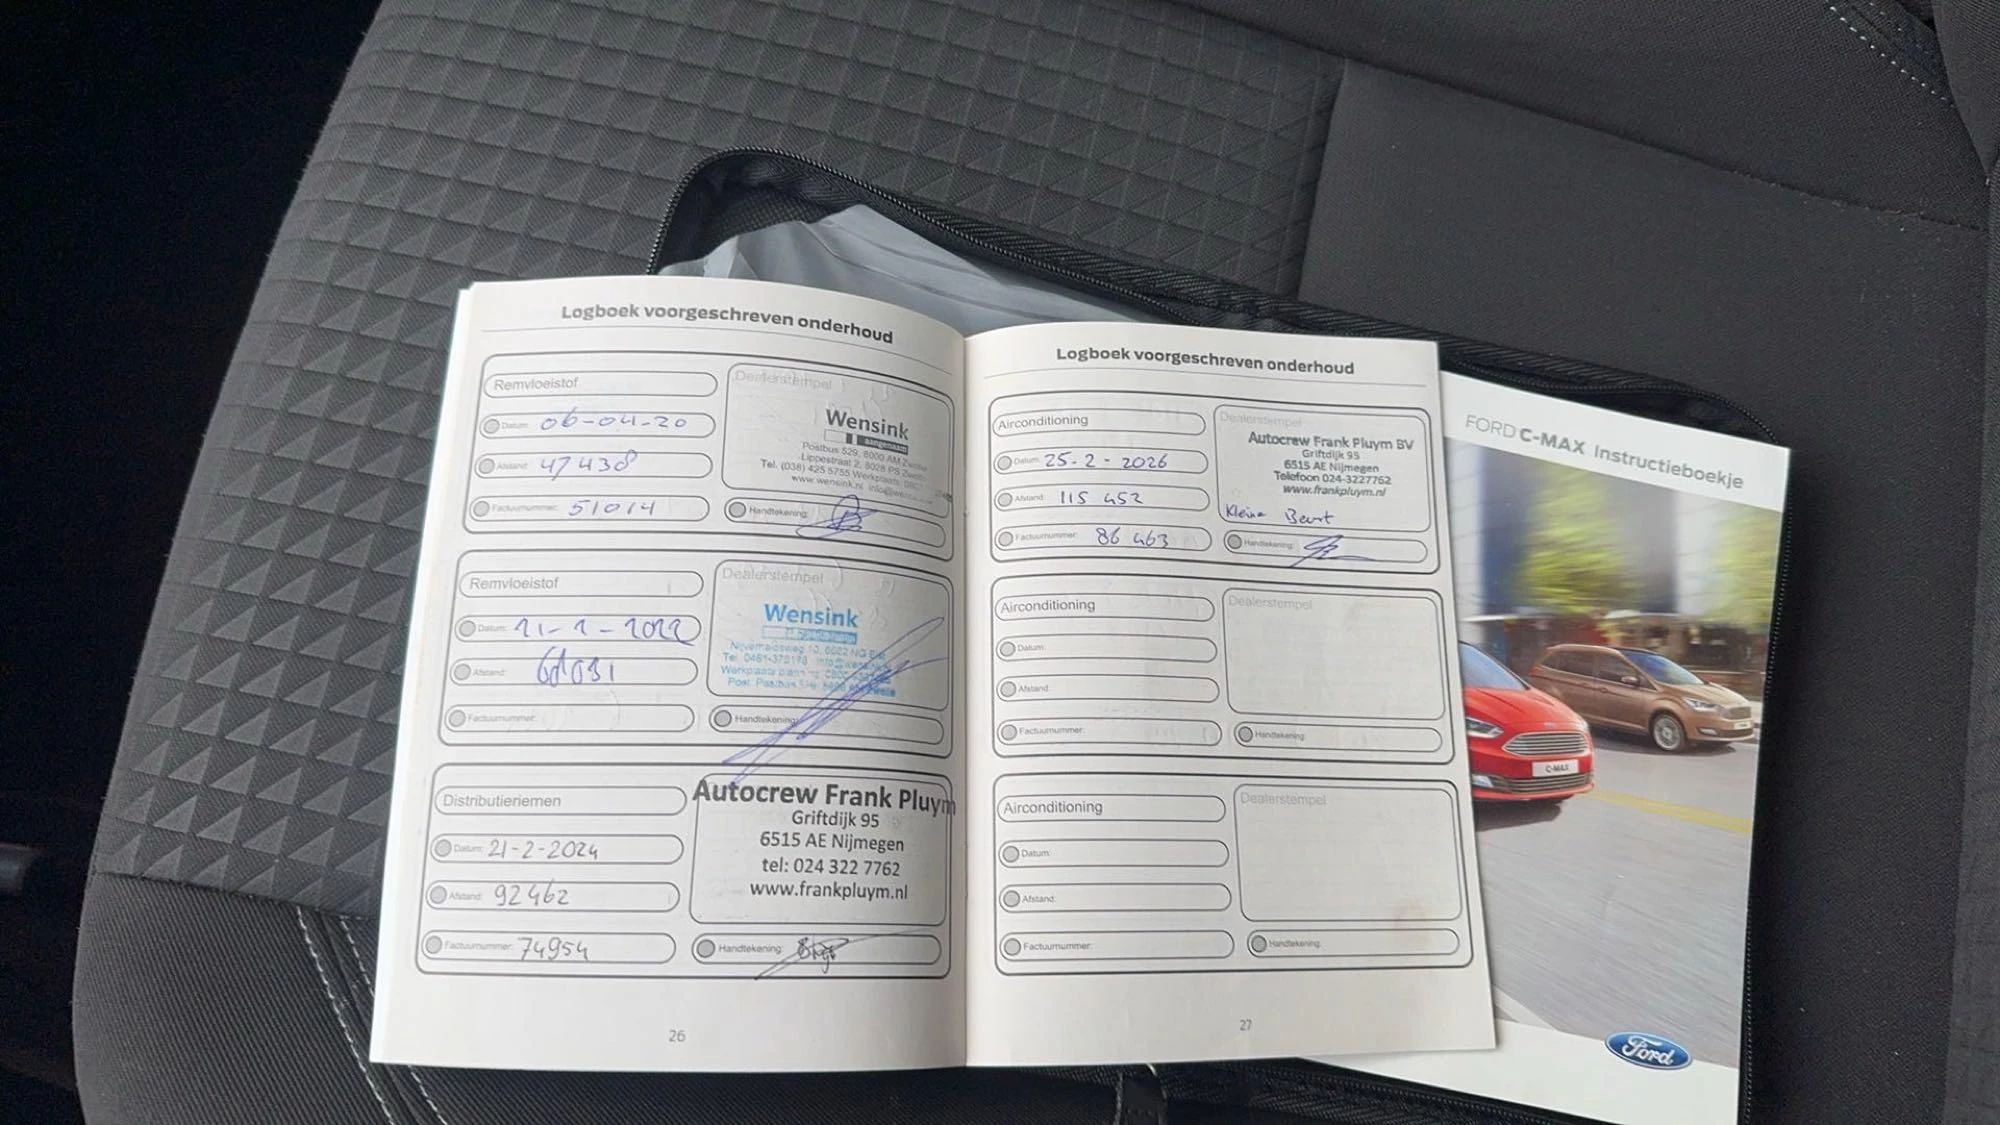 Logboek voorgeschreven onderhoud
Remvloeistof
Dealerstempel
Datum: 06-04-20
Wensink
aangenaam
Postbus 529, 8000 AM
Lippestraat 2, 8028 PS
Tel. (038) 425 5755 Werkplaats:
www.wensink.nl
Afstand: 47438
Factuurnummer: 51014
Handtekening:
Remvloeistof
Dealerstempel
Datum: 21-2-2022
Wensink
Afstand:
Factuurnummer:
Handtekening:
Distributieriemen
Autocrew Frank Pluym
Griftdijk 95
6515 AE Nijmegen
tel: 024 322 7762
www.frankpluym.nl
Datum: 21-2-2024
Afstand: 92462
Factuurnummer: 74954
Handtekening:
26
Logboek voorgeschreven onderhoud
Airconditioning
Dealerstempel
Autocrew Frank Pluym BV
Griftdijk 95
6515 AE Nijmegen
Telefoon 024-3227762
www.frankpluym.nl
Kleine Beurt
Datum: 25-2-2026
Afstand: 115 452
Factuurnummer: 86 463
Handtekening:
Airconditioning
Dealerstempel
Datum:
Afstand:
Factuurnummer:
Handtekening:
Airconditioning
Dealerstempel
Datum:
Afstand:
Factuurnummer:
Handtekening:
27
FORD C-MAX Instructieboekje
C-MAX
Ford